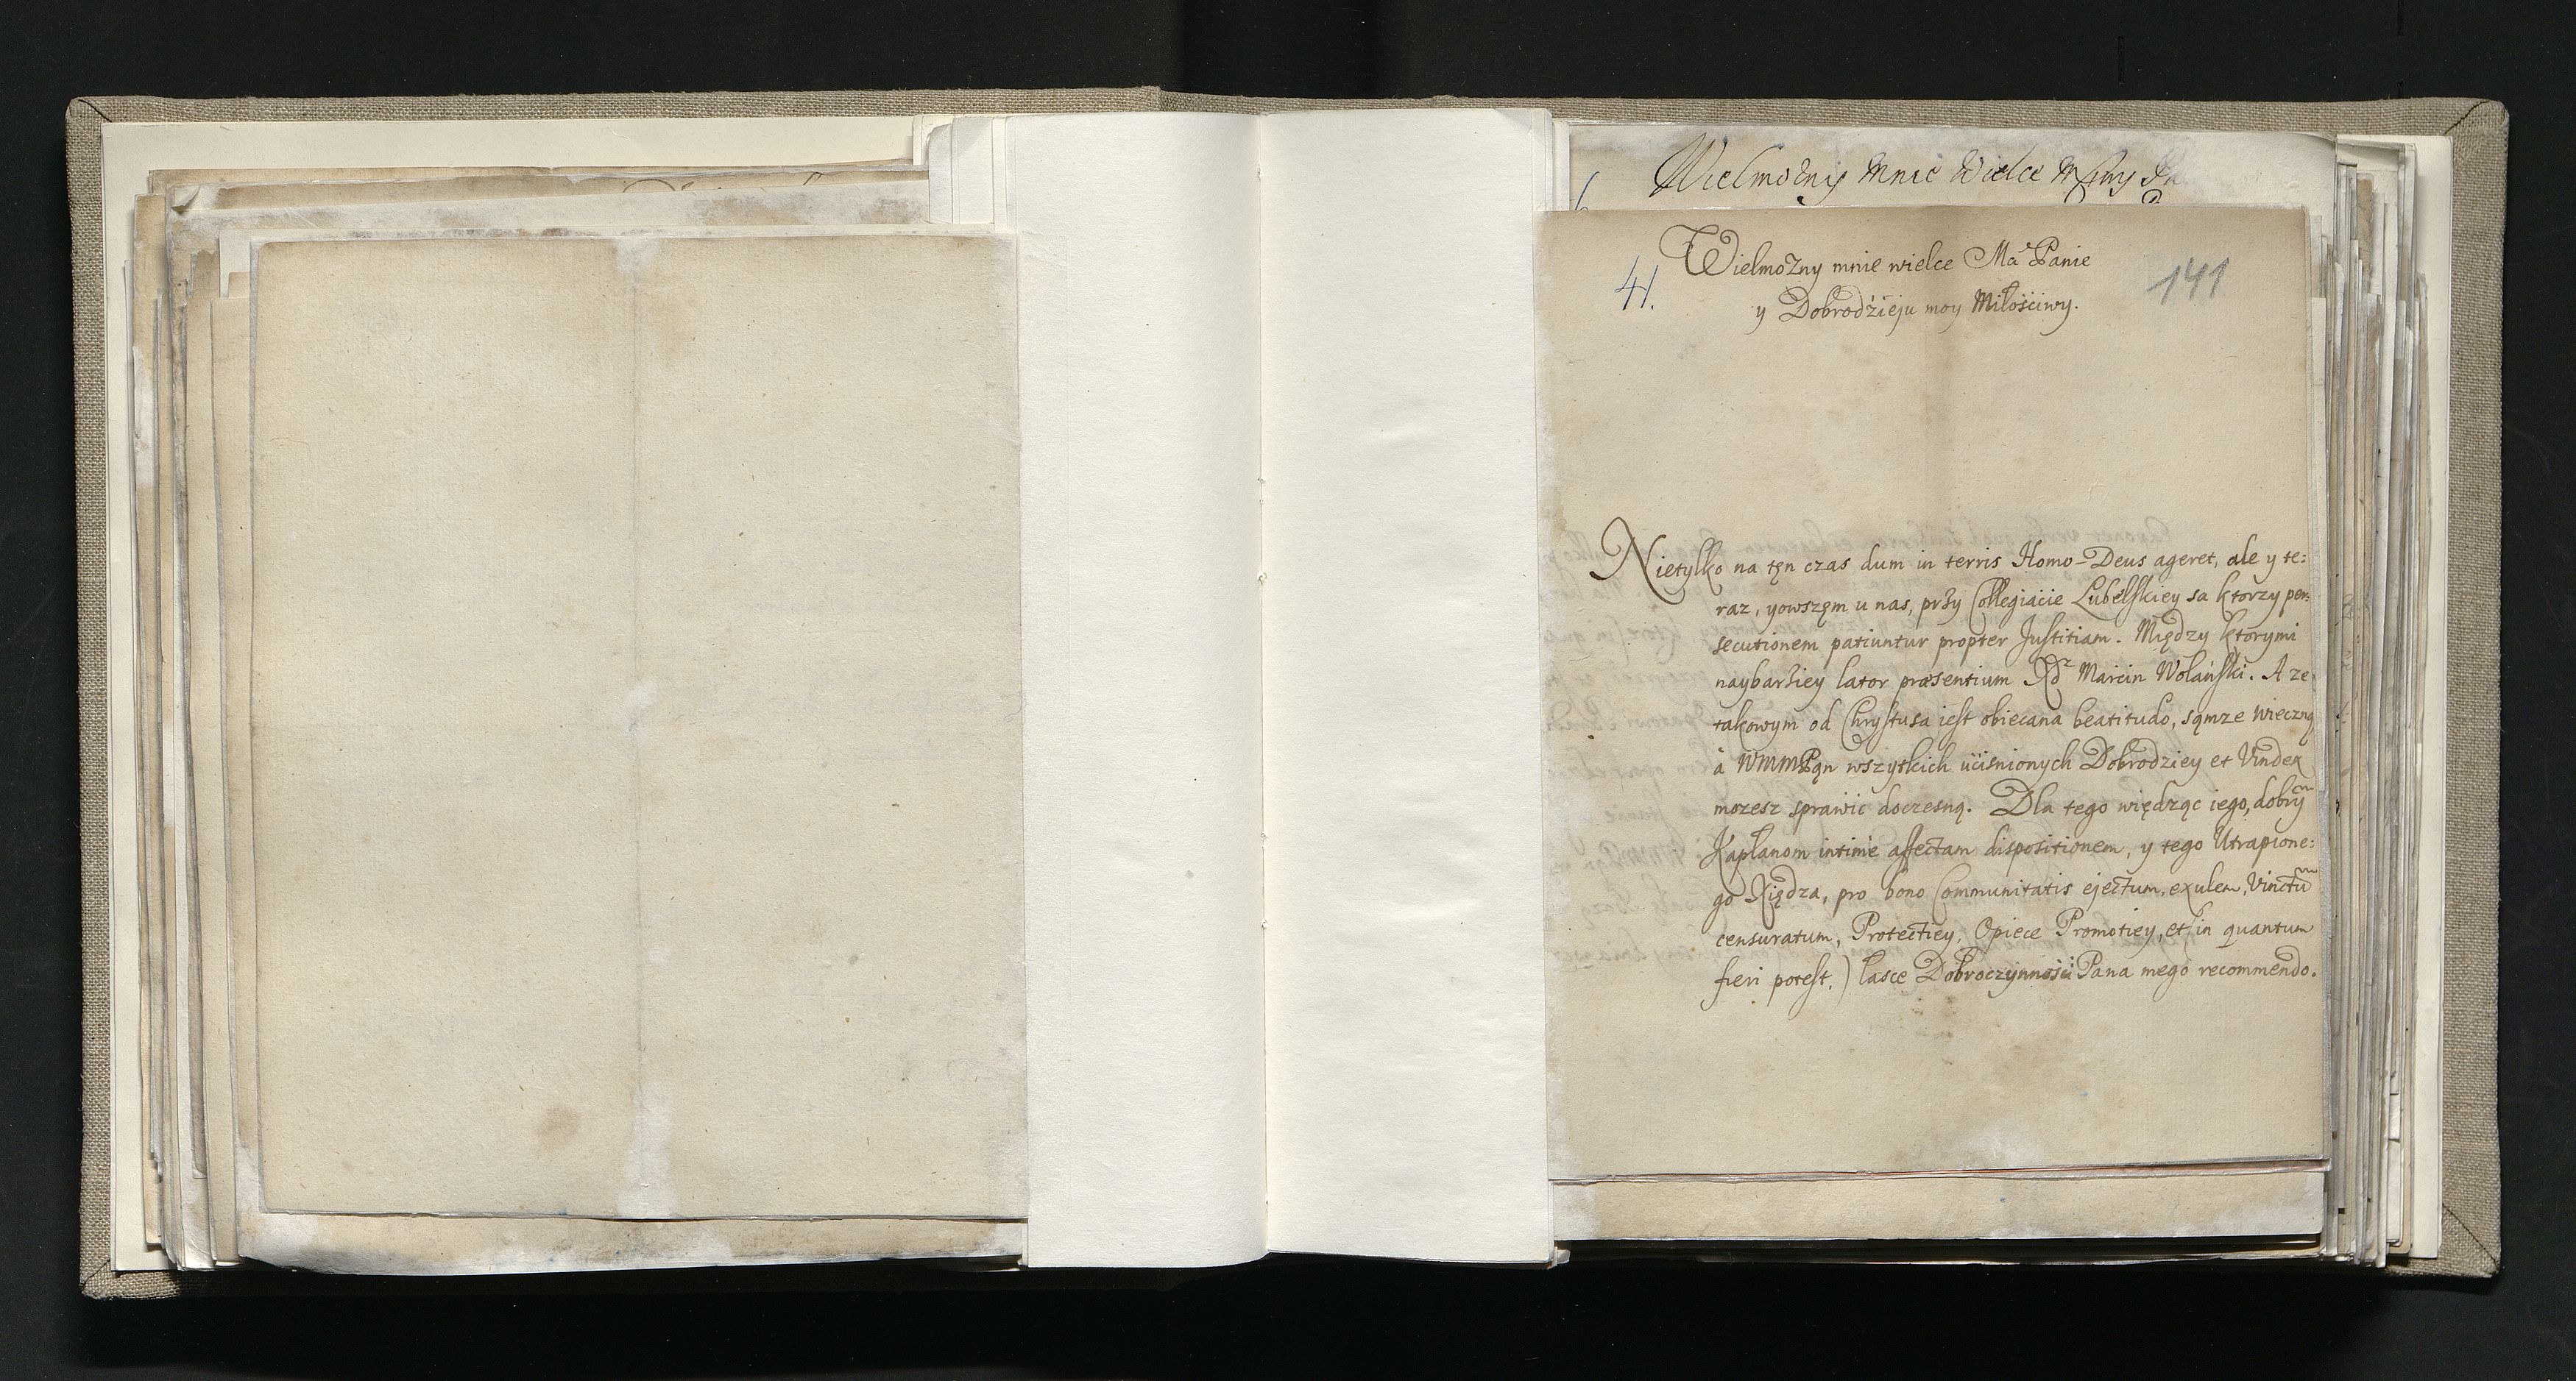 Wielmożny mnie Wielce
Wielmożny mnie wielce Mćı Panie
41.
141
y Dobrodźieju moy Miłośćiwy.
Nietylko na tęn czas dum in terris Homo-Deus ageret, ale y te:
raz, yowszęm u nas, przy Collegiaćie Lubelskiey sa ktorzy per:
secutionem patiuntur propter Justitiam. Między ktorymi
naybarźiey lator præsentium Rdz Marcin Wolański. A ze
takowym od Chrystusa iest obiecana beatitudo, sąmze wieczną,
à WMMPąn wszytkich ućiśnionych Dobrodziey et Vindex
mozesz sprawić doczesną. Dla tego więdząc iego, dobrym
Kapłanom intimè affectam dispositionem, y tego Utrapione:
go Xiędza, pro bono Communitatis ejectum, exulem, Vinctum
censuratum, Protectiey, Opiece Promotiey, et (in quantum
fieri potest.) łasce Dobroczynnośći Pana mego recommendo.